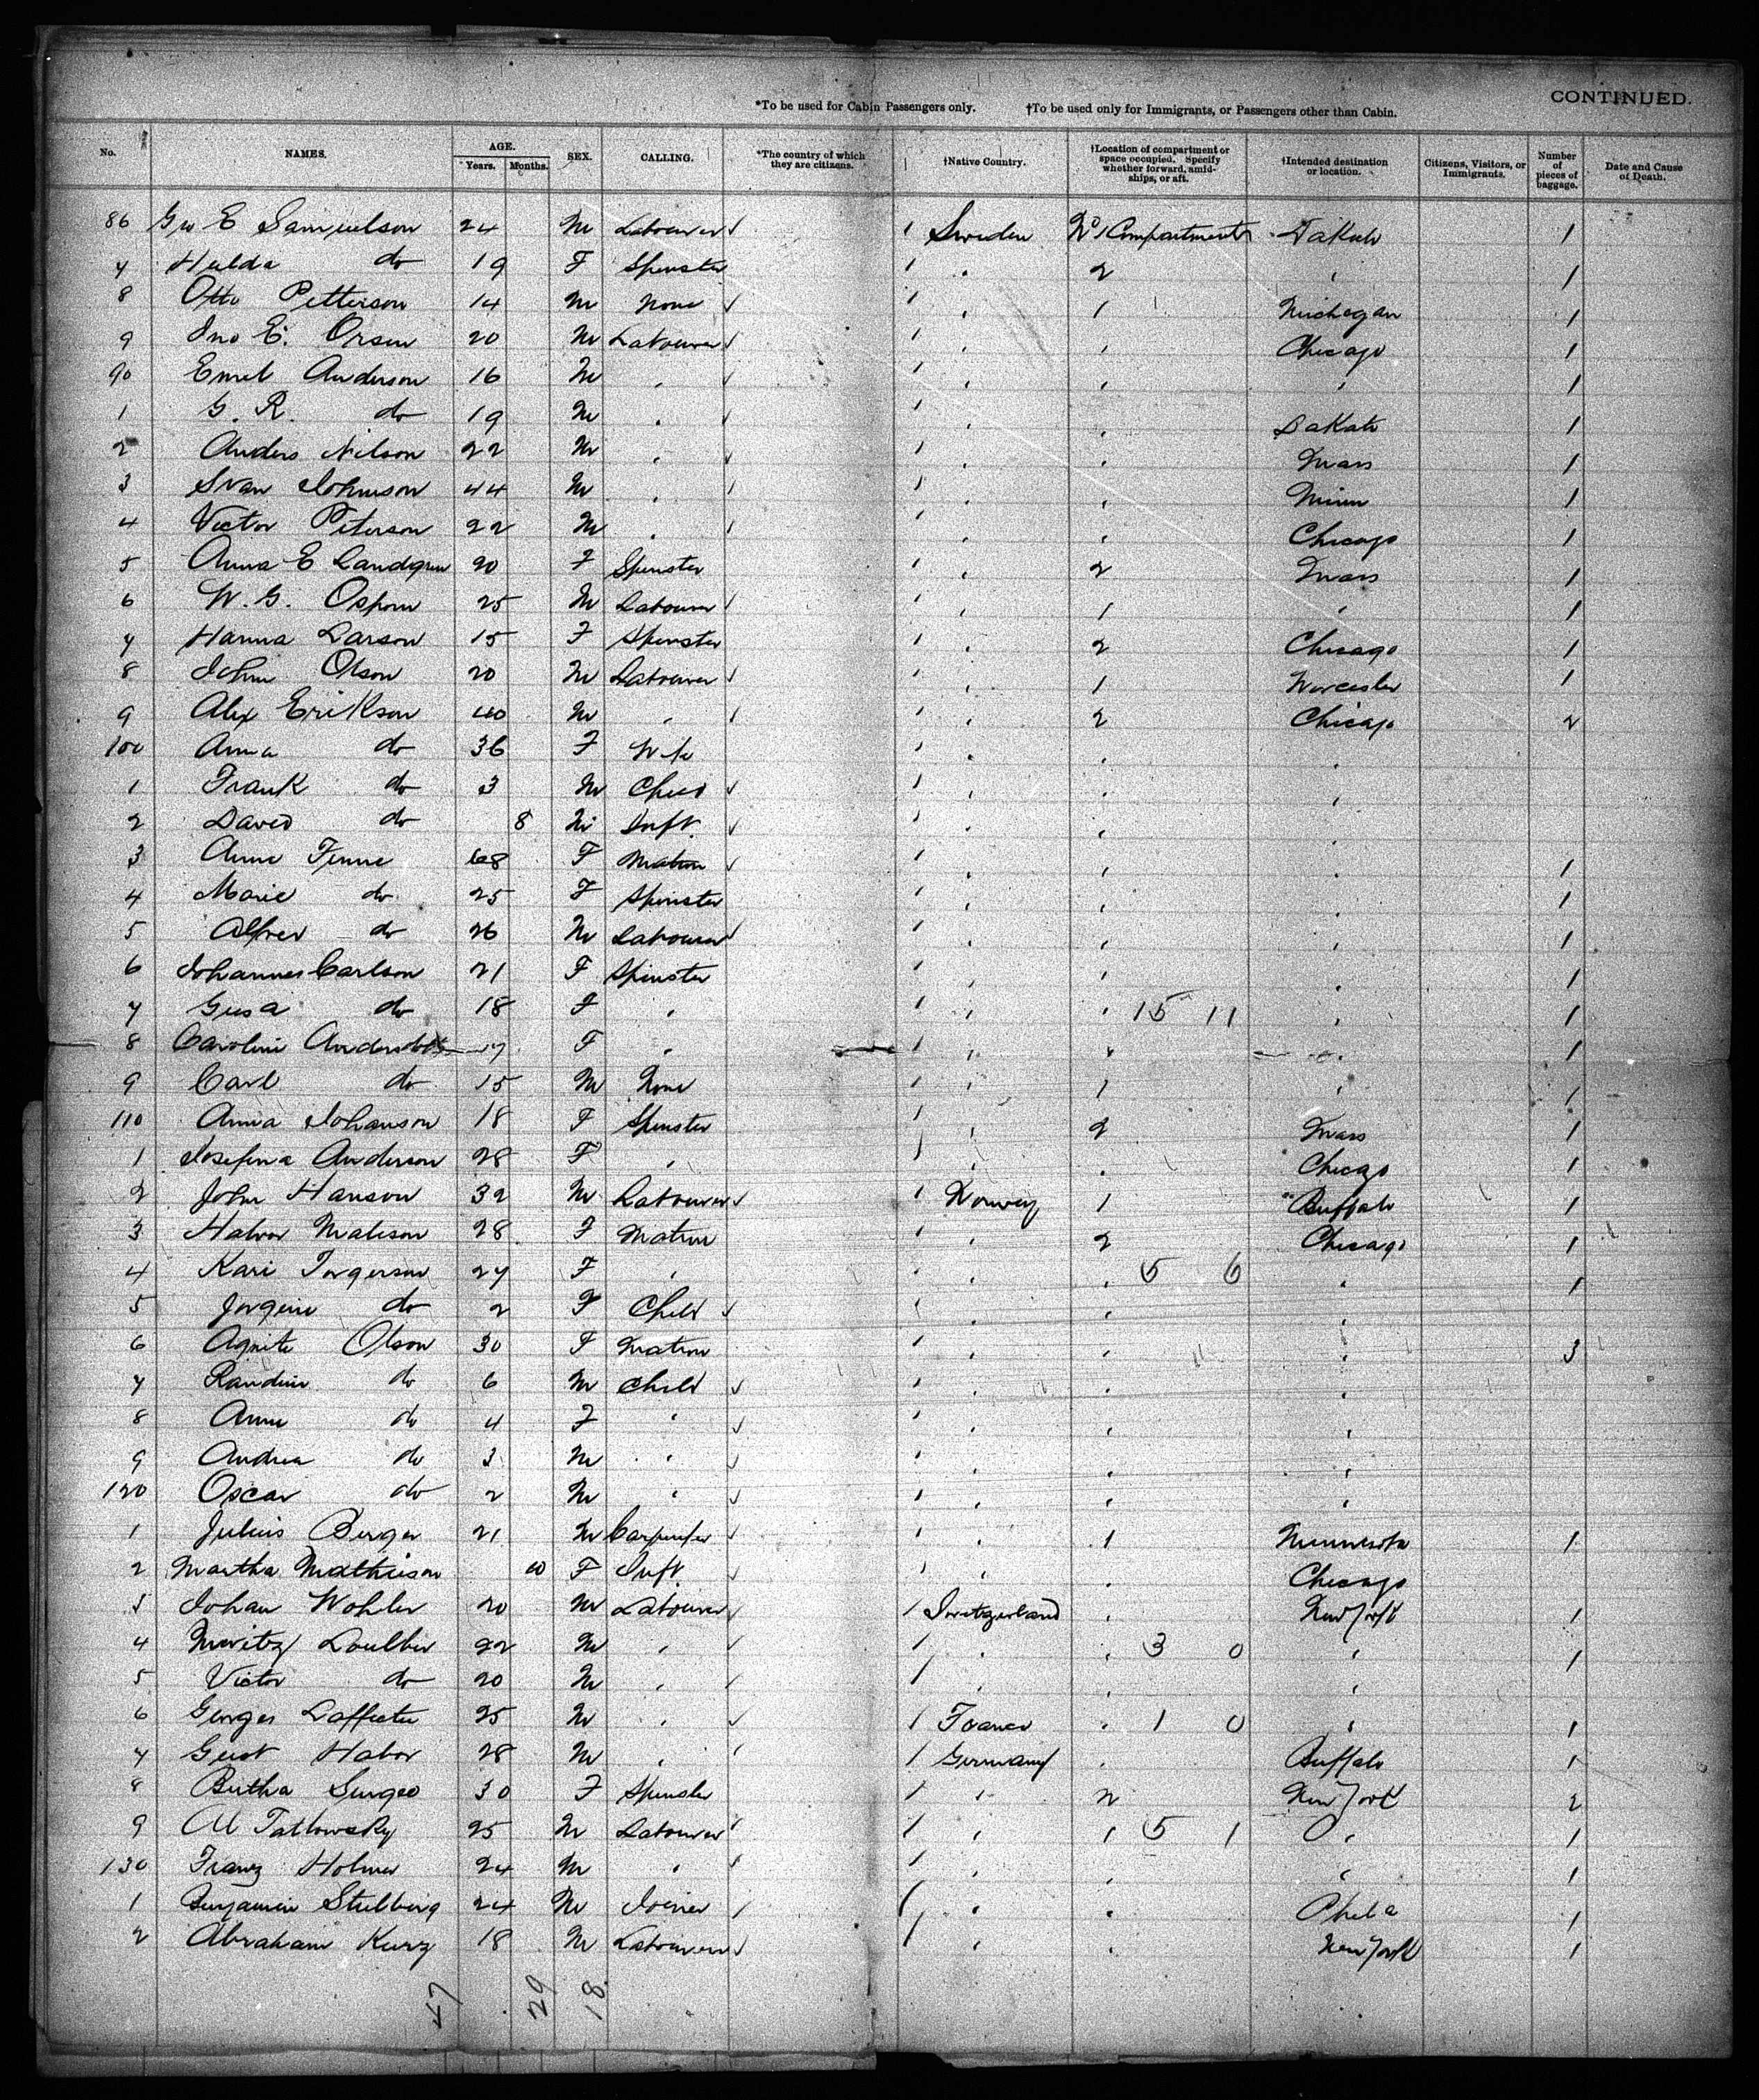 CONTINUED.
*To be used for Cabin Passengers only. †To be used only for Immigrants, or Passengers other than Cabin.
No. NAMES. AGE. Years. Months. SEX. CALLING. *The country of which they are citizens. †Native Country. †Location of compartment or space occupied. Specify whether forward, amidships, or aft. †Intended destination or location. Citizens, Visitors, or Immigrants. Number of pieces of baggage. Date and Cause of Death.
86 E Samuelson 24 M Labourer ✓ 1 Sweden No 1 Compartment Dakato 1
7 Hulda do 19 F Spinster 1 " 2 " 1
8 Otto Petterson 14 M None ✓ 1 " 1 Michegan 1
9 Jno E. Orsen 20 M Labourer ✓ 1 " " Chicago 1
90 Emel Anderson 16 M " ✓ 1 " " " 1
1 G. R. do 19 M " ✓ 1 " " Dakato 1
2 Anders Nilson 22 M " ✓ 1 " " Mass 1
3 Svan Johnson 44 M " ✓ 1 " " Minn 1
4 Victor Peterson 22 M " ✓ 1 " " Chicago 1
5 Anna E Landgren 20 F Spinster 1 " 2 Mass 1
6 W. G. 25 M Labourer ✓ 1 " 1 " 1
7 Hanna Larson 15 F Spinster 1 " 2 Chicago 1
8 John Olson 20 M Labourer ✓ 1 " 1 Worcester 1
9 Alex Erikson 40 M " ✓ 1 " 2 Chicago 2
100 Anna do 36 F Wife 1 " " "
1 Frank do 3 M Child ✓ 1 " " "
2 David do 8 M Inft. ✓ 1 " " "
3 Anne Finne 68 F Matron ✓ 1 " " " 1
4 Marie do 25 F Spinster 1 " " " 1
5 Alfred do 26 M Labourer ✓ 1 " " " 1
6 Johannes Carlson 21 F Spinster 1 " " " 1
7 Gusa do 18 F " 1 " " 15 11 " 1
8 Caroline 17 F " 1 " " " 1
9 Carl do 15 M None 1 " 1 " 1
110 Anna Johanson 18 F Spinster 1 " 2 Mass 1
1 Josefina Anderson 28 F " 1 " " Chicago 1
2 John Hanson 32 M Labourer ✓ 1 Norway 1 Buffalo 1
3 Halvor Madison 28 F Matron 1 " 2 Chicago 1
4 Kari Torgerson 27 F " 1 " " 5 6 " 1
5 Jorgine do 2 F Child ✓ 1 " " "
6 Agnite Olson 30 F Matron 1 " " " 3
7 Randine do 6 M Child ✓ 1 " " "
8 Anne do 4 F " ✓ 1 " " "
9 Andrea do 3 M " ✓ 1 " " "
120 Oscar do 2 M " ✓ 1 " " "
1 Julius Berger 21 M Carpenter ✓ 1 " 1 Minnesota 1
2 Martha Mathieson 10 F Inft. ✓ 1 " " Chicago
3 Johan Wohler 20 M Labourer ✓ 1 Switzerland " New York 1
4 Moritz 22 M " ✓ 1 " " 3 0 " 1
5 Victor do 20 M " ✓ 1 " " "
6 Georges 25 M " ✓ 1 France " 1 0 " 1
7 Gust Habor 28 M " ✓ 1 Germany " Buffalo 1
8 Bertha 30 F Spinster 1 " 2 New York 2
9 Al Tatlowsky 25 M Labourer ✓ 1 " 1 5 1 " 1
130 Franz Holmer 24 M " ✓ 1 " " " 1
1 Benjamin Stulberg 24 M Joiner ✓ 1 " " Phila 1
2 Abraham Kurz 18 M Labourer ✓ 1 " " New York 1
47 29 18